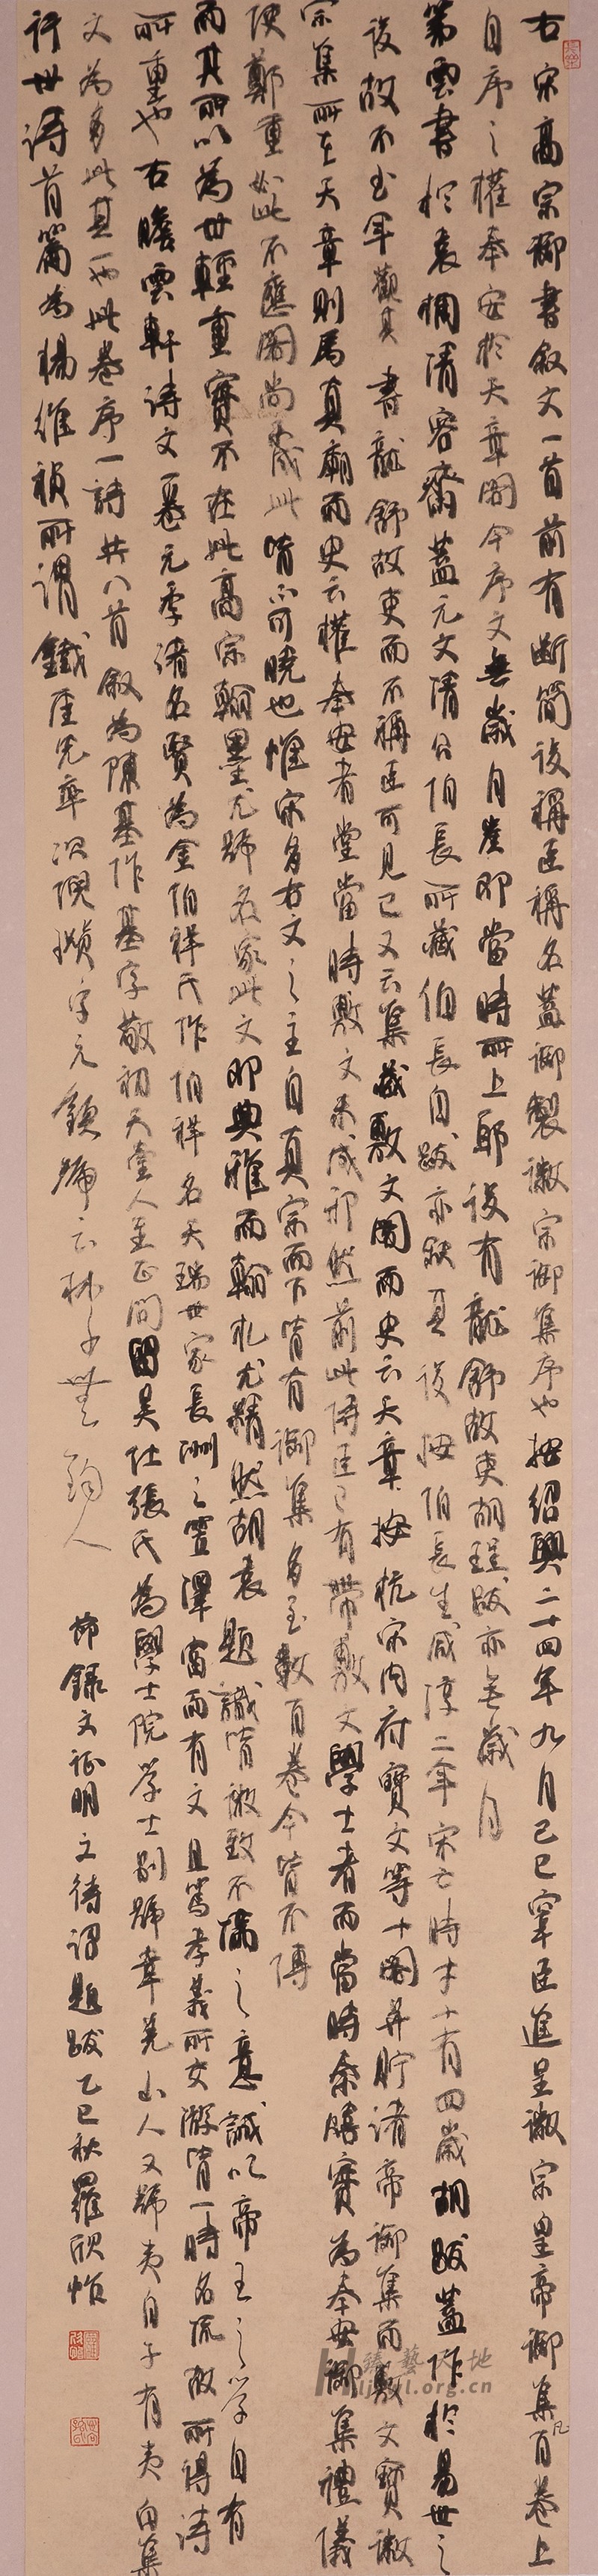 右宋高宗御书叙文一首前有断简后称臣称名盖御製徽宗御集序也按绍興二十四年九月己巳宰臣進呈徽宗皇帝御集凡百卷上
自序之權奉安於天章閣今序文無歲月豈即當時所上耶後有龍舒故吏胡珵跋亦無歲月
第雲書於袁桷清容齋蓋元文清公伯長所藏伯長自跋亦秋夏後按伯長生咸淳二年宋亡時才十有四歲胡跋蓋作於易世之
後故不书年觀其書龍舒故吏而不稱臣可見已又云集藏敷文閣而史云天章按杭宋内府寶文等十閣并貯諸帝御集而敷文實徽
宗集所在天章則為真廟而史云權奉安者豈當時敷文未成邪然前此侍臣已有帶敷文學士者而當時秦熺實為奉安御集禮儀
使鄭重如此不應閣尚未成此皆不可曉也惟宋多右文之主自真宗而下皆有御集多至數百卷今皆不傳
而其所以為世輕重實不在此高宗翰墨尤號名家此文即典雅而翰札尤精然胡袁題識皆微致不滿之意誠以帝王之学自有
所重也右瞻雲軒詩文一卷元季諸名賢為金伯祥氏作伯祥名天瑞世家長洲之雪澤富而有文且篤孝義所交游皆一時名流故所得詩
文為多此其一也此卷序一詩共八首叙為陳基作基字敬初天臺人至正間留吴仕張氏為學士院学士别號韋羌山人又號夷白子有夷白集
行世詩首篇為楊維禎所謂鐵厓先率次倪瓚字元鎮號云林子無錫人
節録文徵明文待詔題跋乙巳秋羅欣怡
書藝天地
hljsjt.org.cn